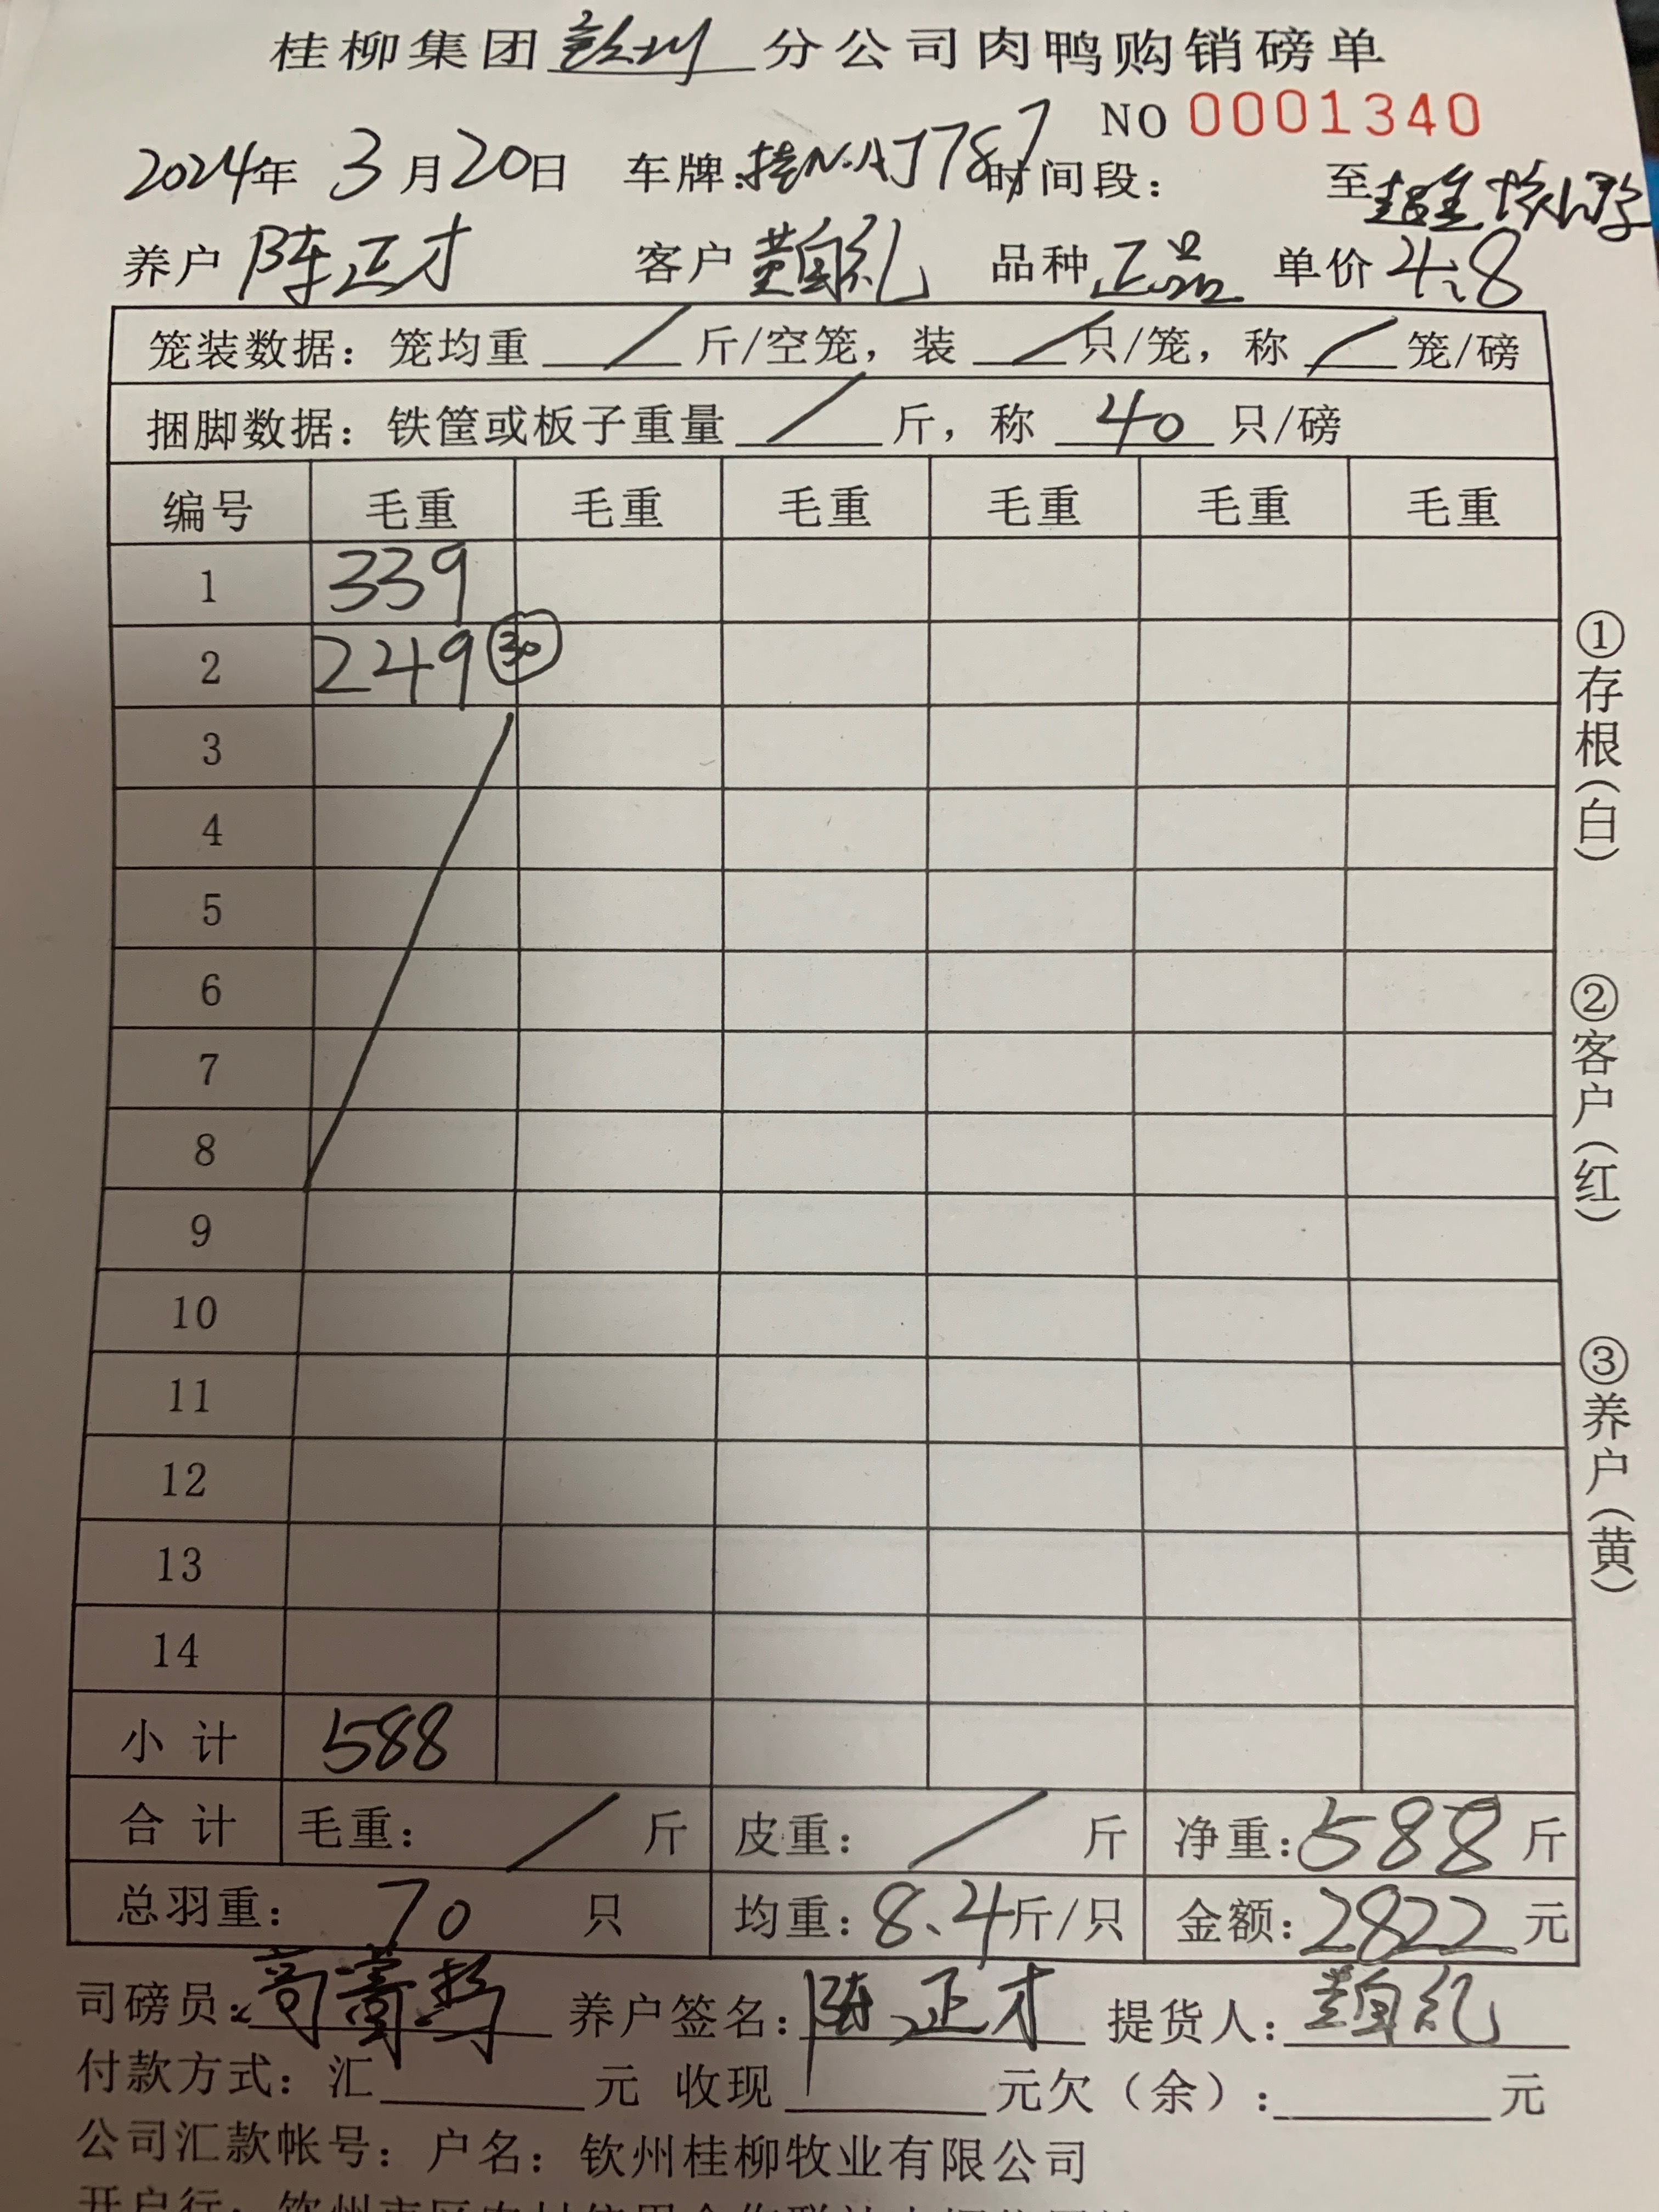 桂柳集团钦州分公司肉鸭购销磅单
NO 0001340
2024年 3月20日 车牌:桂N·AJ787 时间段: 至
养户 陈正才 客户 黄自礼 品种 正品 单价 4.8
笼装数据:笼均重 / 斤/空笼,装 / 只/笼,称 / 笼/磅
捆脚数据:铁筐或板子重量 / 斤,称 40 只/磅
编号 毛重 毛重 毛重 毛重 毛重 毛重
1 339
2 249 30
3
4
5
6
7
8
9
10
11
12
13
14
小计 588
合计 毛重: / 斤 皮重: / 斤 净重:588斤
总羽重: 70 只 均重:8.4斤/只 金额:2822元
司磅员: 养户签名:陈正才 提货人:黄自礼
付款方式:汇 元 收现 元欠(余): 元
公司汇款帐号:户名:钦州桂柳牧业有限公司
开户行:
①存根(白)
②客户(红)
③养户(黄)